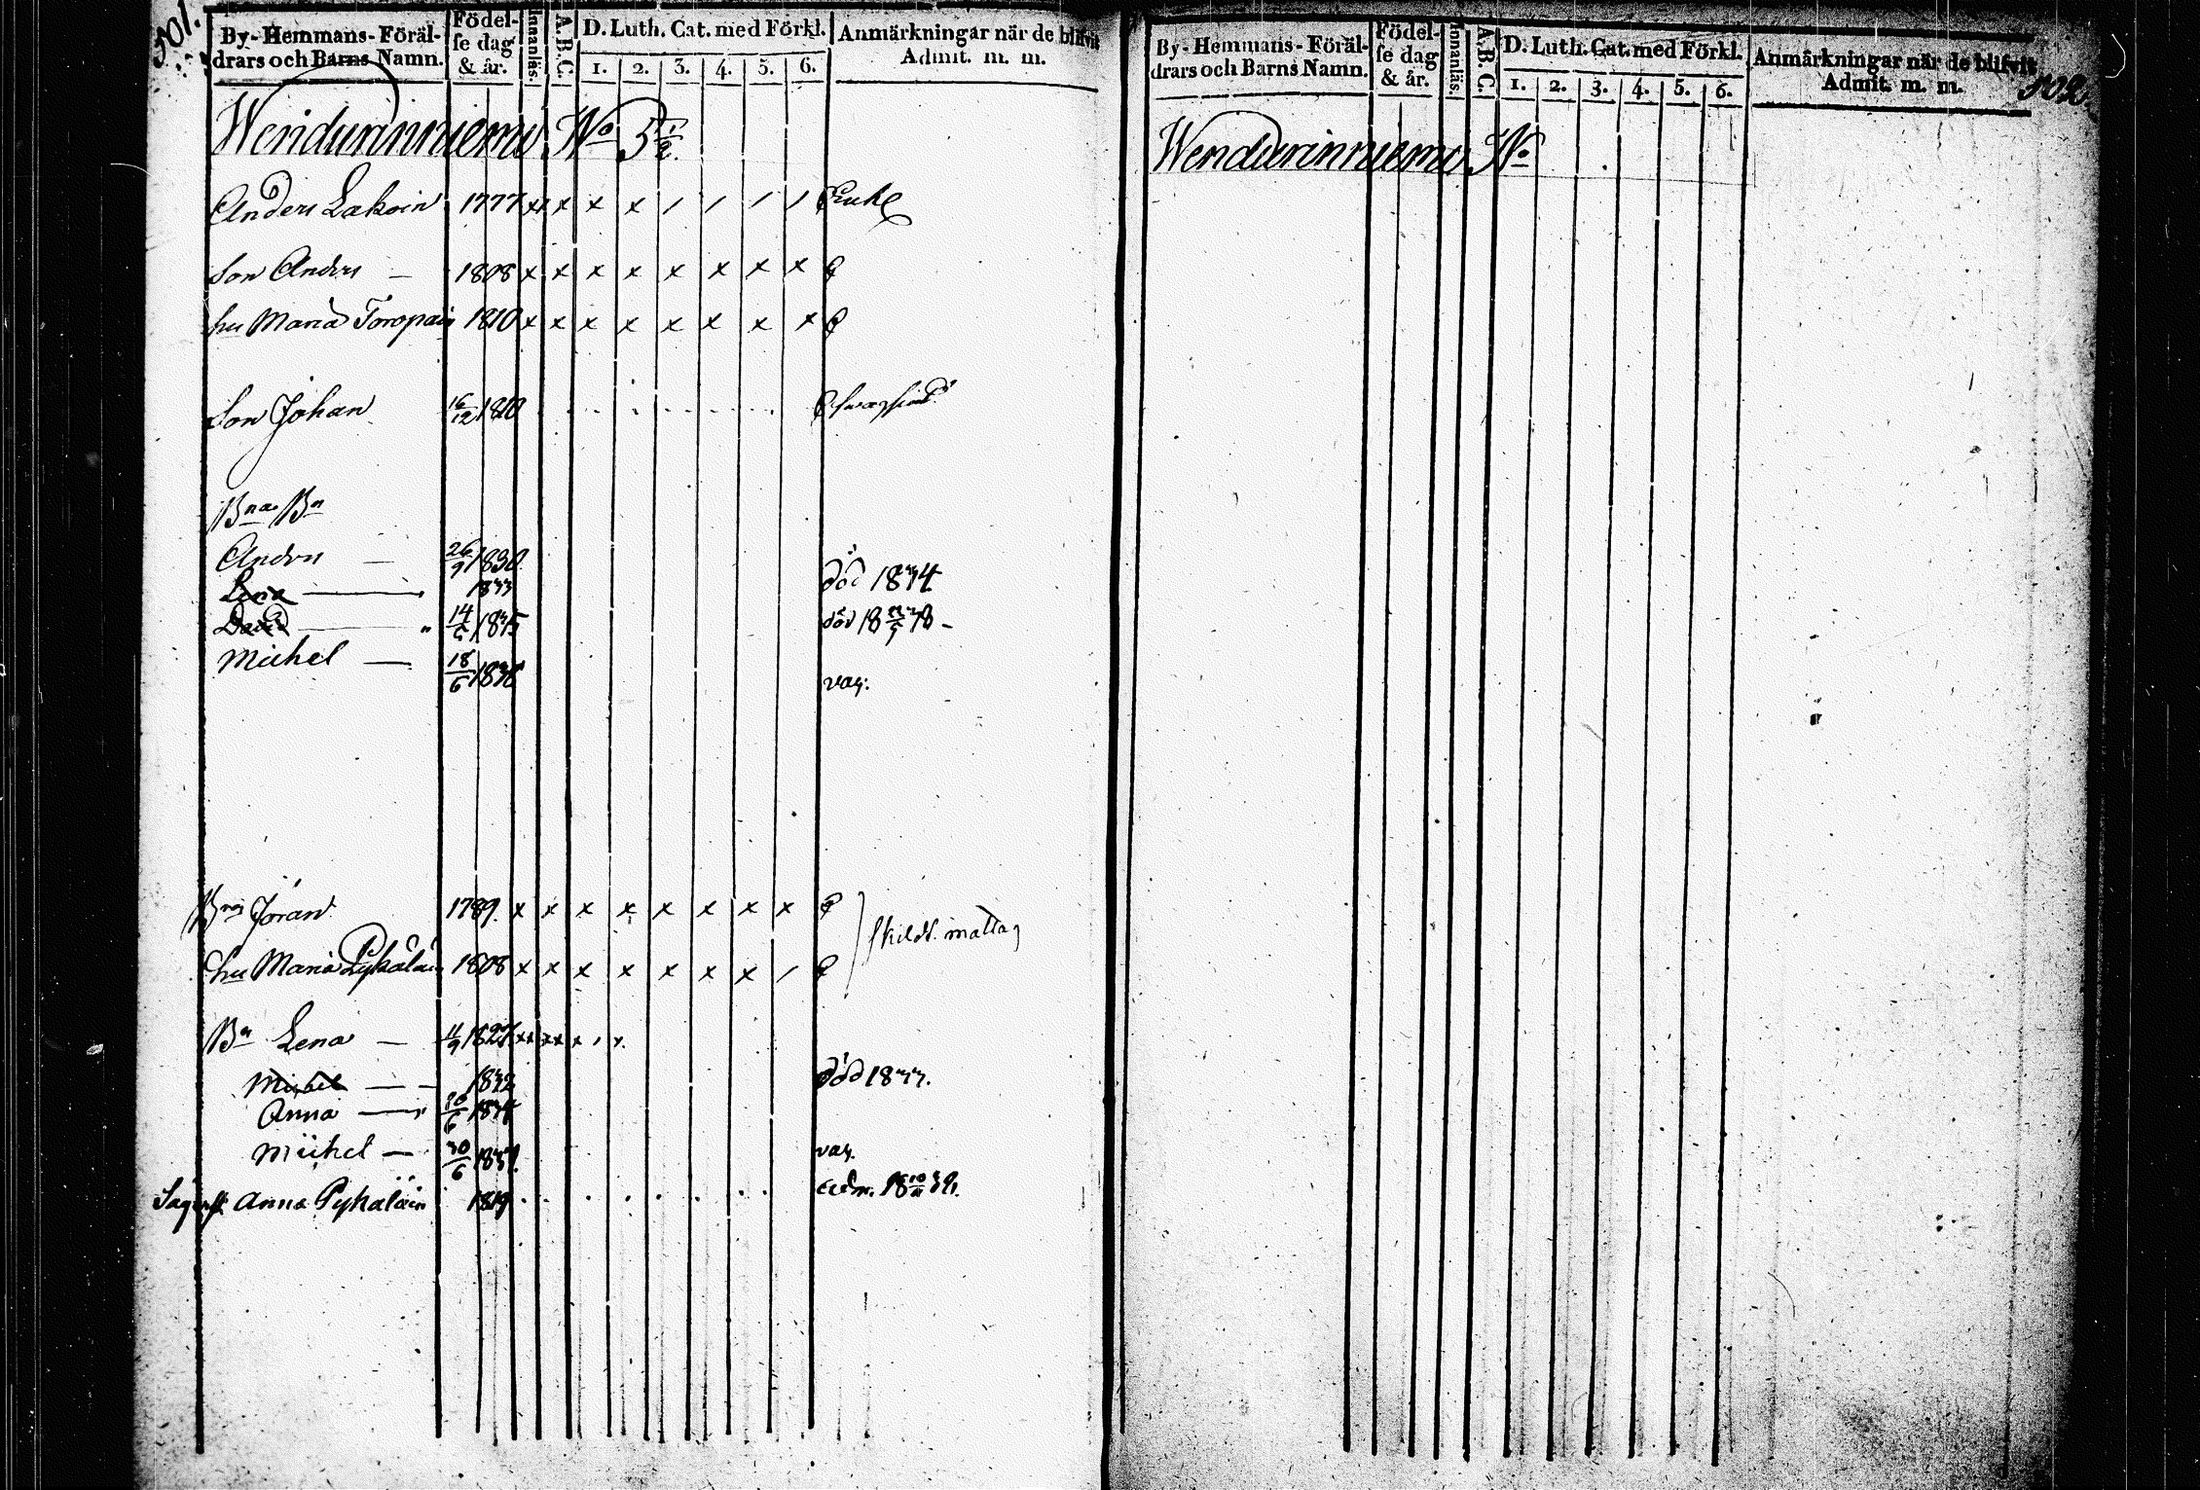 501.
By-Hemmans-Föräl-
drars och Barns Namn.
Födel-
se dag
& år.
Innanläs.
A.B.C.
D. Luth. Cat. med Förkl.
1. 2. 3. 4. 5. 6.
Anmärkningar när de blifvit
Admit. m. m.
Wendurinniemi No 5 1/2.
Anders Lakoin 1777 x x x x / / / / Enkl
Son Anders — 1808 x x x x x x x x
hu Maria Toropain 1810 x x x x x x x x
Son Johan 16/12 1810
Bnas Bn
Anders — 26/9 1830
Lena — 1833 död 1834
David — " 14/6 1835
Michel — 18/6 1838 vac:
Bror Jöran 1789. x x x x x x x x
skildt. matlag
hu Maria Pykäläin 1808 x x x x x x x /
Bn Lena — 1827
Michel — 1832 död 1833.
Anna — "
Michel — 30/6 vac.
Anna Pykäläin 1819
By-Hemmans-Föräl-
drars och Barns Namn.
Födel-
se dag
& år.
Innanläs.
A.B.C.
D. Luth. Cat. med Förkl.
1. 2. 3. 4. 5. 6.
Anmärkningar när de blifvit
Admit. m. m.
502.
Wendurinniemi No